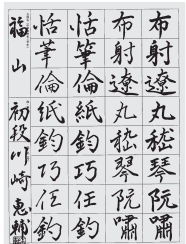 布射遼丸嵇琴阮嘯
布射遼丸嵇琴阮嘯
恬筆倫紙鈞巧任釣
恬筆倫紙鈞巧任釣
福山 初段 川崎惠輔